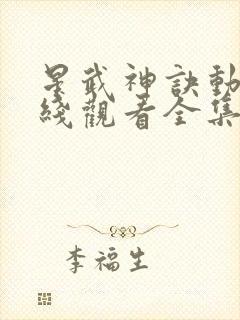 星武神訣動
綫觀看全集
李福生